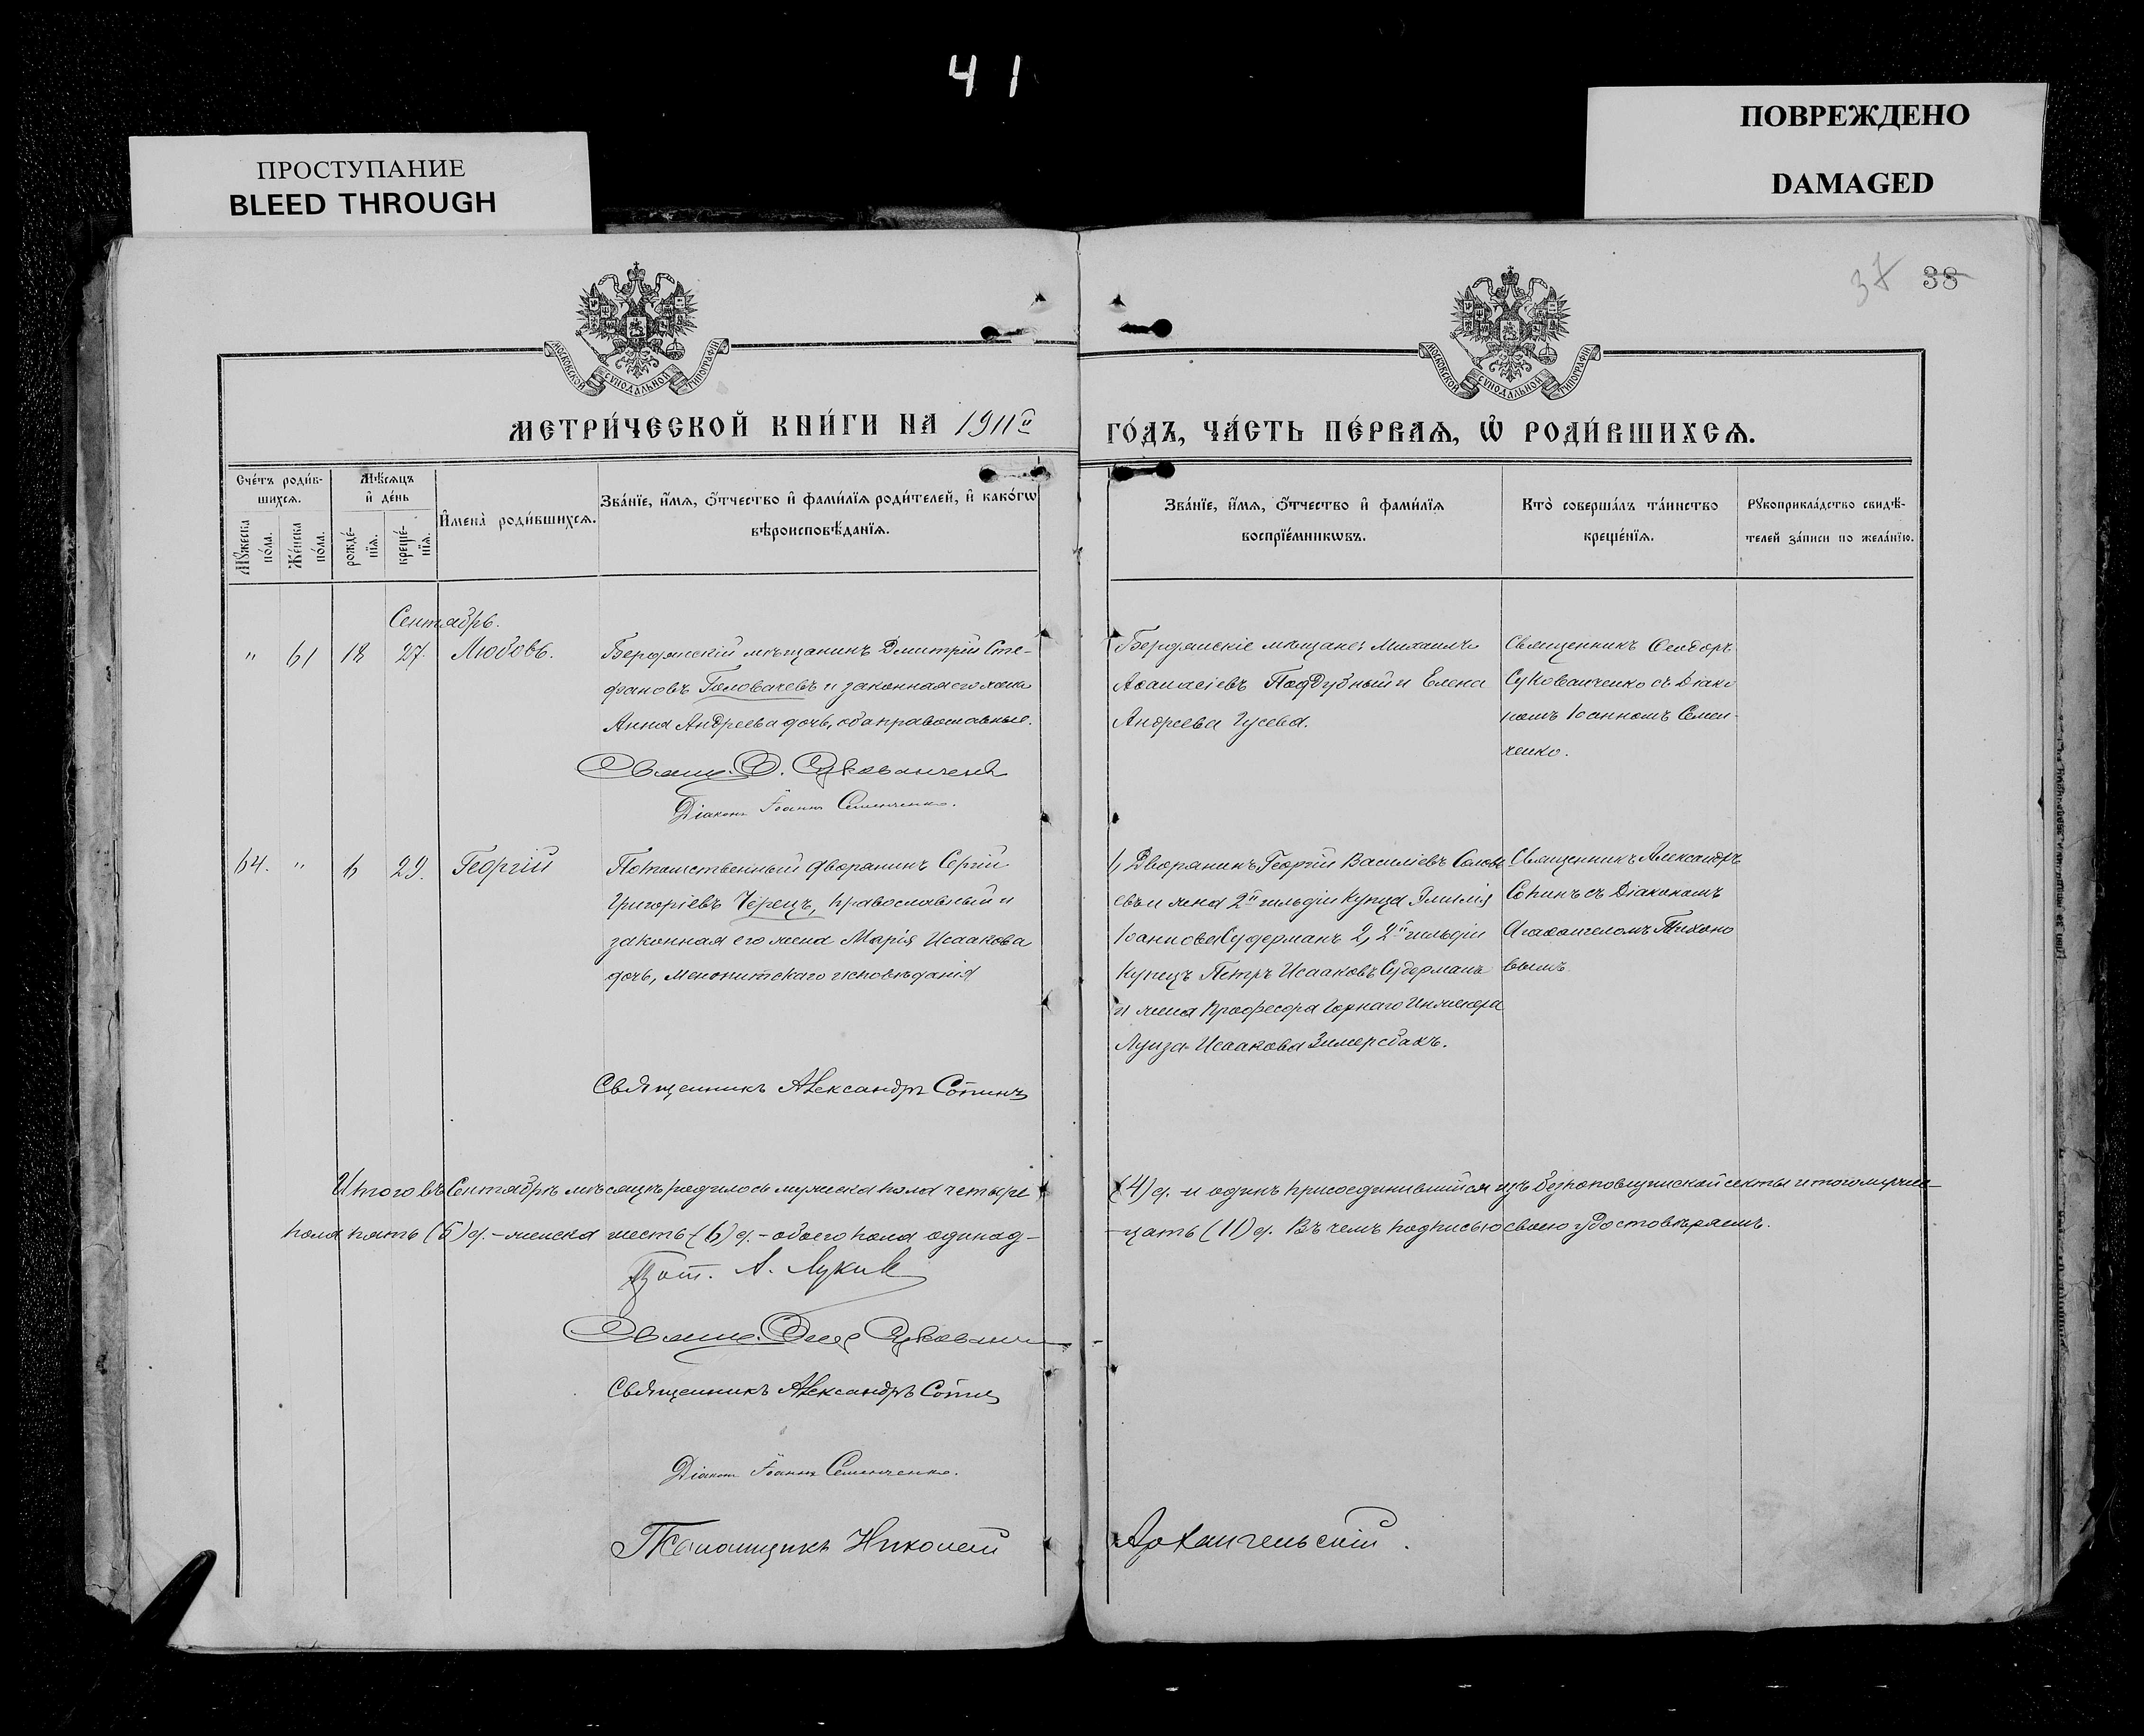 41
ПРОСТУПАНИЕ
BLEED THROUGH
ПОВРЕЖДЕНО
DAMAGED
37 38
МОСКОВСКОЙ СУНОДАЛЬНОЙ ТИПОГРАФІИ
МОСКОВСКОЙ СУНОДАЛЬНОЙ ТИПОГРАФІИ
МЕТРИ́ЧЕСКОЙ КНИ́ГИ НА 1911й
ГО́ДЪ, ЧА́СТЬ ПЕ́РВАѦ, Ѡ РОДИ́ВШИХСѦ.
Сче́тъ роди́в-
шихсѧ.
Мꙋжеска по́ла.
Же́нска по́ла.
Мѣсѧцъ
и҆ де́нь
рожде́-
нїѧ.
креще́-
нїѧ.
И҆мена̀ роди́вшихсѧ.
Зва́нїе, и҆́мѧ, ѻ҆́тчество и҆ фами́лїѧ роди́телей, и҆ како́гѡ
вѣроисповѣ́данїѧ.
Зва́нїе, и҆́мѧ, ѻ҆́тчество и҆ фами́лїѧ
воспрїе́мникѡвъ.
Кто̀ соверша́лъ та́инство
креще́нїѧ.
Рꙋкоприкла́дство свидѣ́-
телей за́писи по жела́нїю.
Сентябрь.
" 61 18 27. Любовь.
Бердянскій мѣщанинъ Дмитрій Сте-
фановъ Головачевъ и законная его жена
Анна Андреева дочь, оба православные.
Бердянскіе мѣщане: Михаилъ
Аѳанасіевъ Поддубный и Елена
Андреева Гусева.
Священникъ Ѳеодоръ
Сукованченко съ Діако
номъ Іоанномъ Семен-
ченко.
Свящ. Ѳ. Сукованченко
Діаконъ Іоаннъ Семенченко.
64. " 6 29. Георгій
Потомственный дворянинъ Сергій
Григоріевъ Черецъ, православный и
законная его жена Марія Исаакова
дочь, Менонитскаго исповѣданія
1, Дворянинъ Георгій Василіевъ Солов
евъ и жена 2й гильдіи купца Эмилія
Іоаннова Судерманъ 2, 2й гильдіи
купецъ Петръ Исааковъ Судерманъ
и жена Профессора Горнаго Инженера
Луиза Исаакова
Священникъ Александръ
Сопинъ съ Діакономъ
Агаѳангеломъ Тихоно
вымъ.
Священникъ Александръ Сопинъ
Итого въ Сентябрѣ мѣсяцѣ родилось мужеска пола четыре
(4) д. и одинъ присоединившійся изъ безпоповщинской секты итого мужес-
пола пять (5) д. - женска шесть (6) д. - обоего пола одинад-
-цать (11) д. Въ чемъ подписью своею удостовѣряемъ.
Прот. А. Лукин
Свящ. Ѳеод Сукованч
Священникъ Александръ Сопин
Діакон Іоаннъ Семенченко.
Псаломщикъ Николай
Архангельскій.